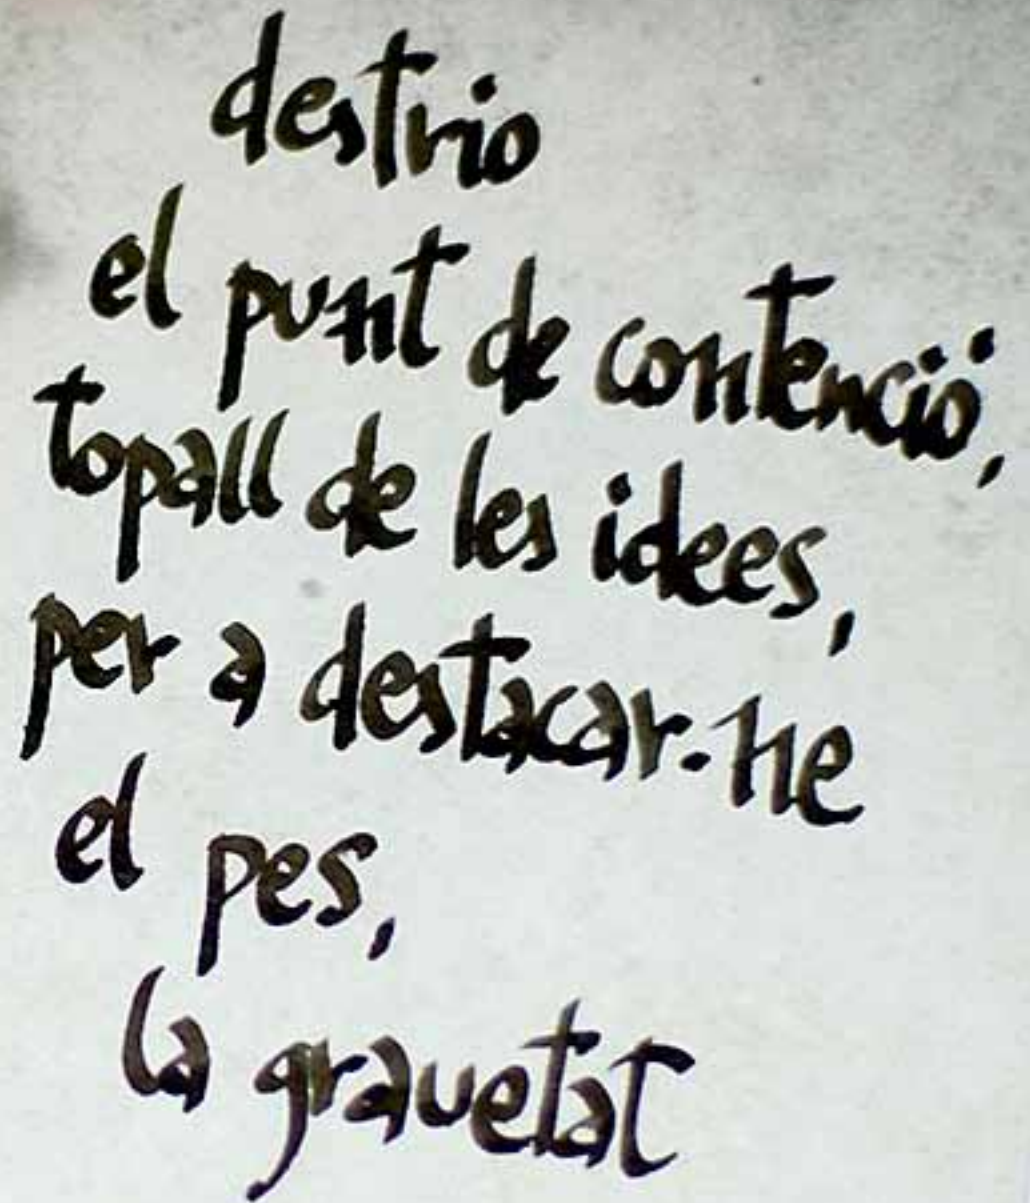 destrio
el punt de contenció,
topall de les idees,
per a destacar-ne
el pes,
la gravetat